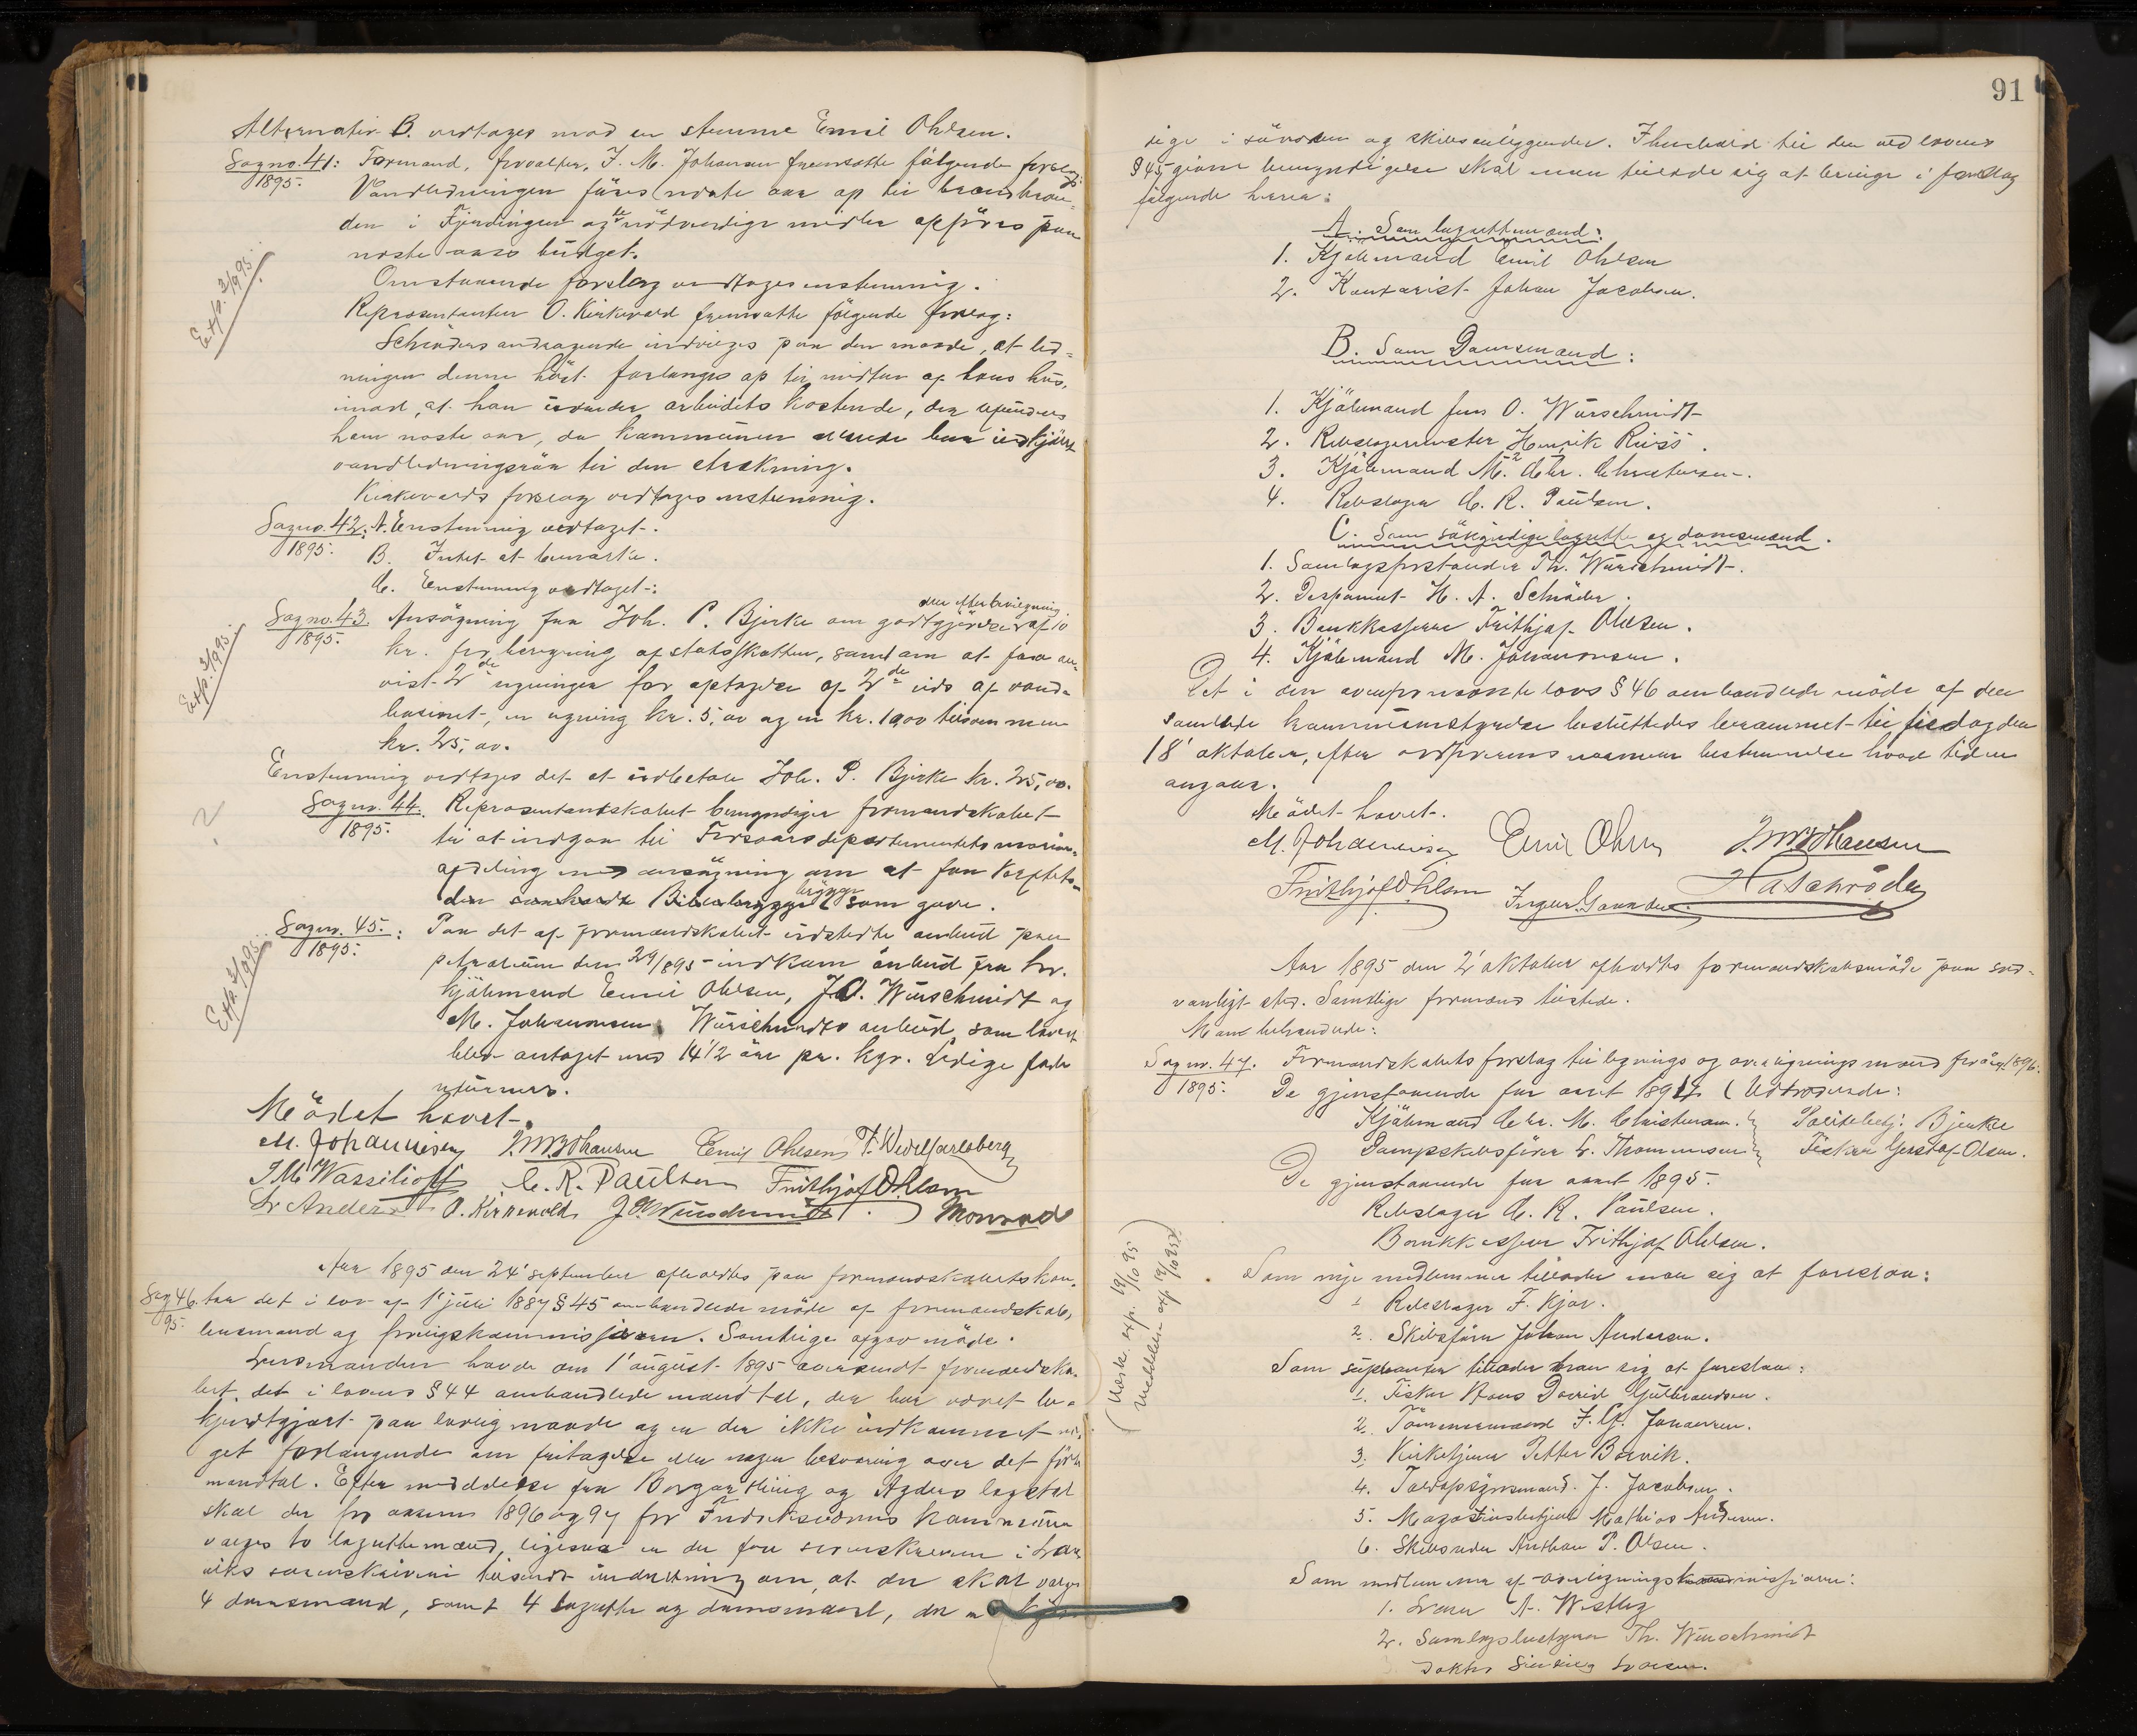 Alternativ B. vedtages mod en stemme Emil Ohlsen.
Sag no. 41: Formand, forvalter, J. M. Johansen fremsatte følgende forslag:
1895.
Vandledningen føres neste aar op til brandbrøn-
den i Fjerdingen og de nødvendige midler opføres paa
neste aars budget.
Omstaaende forslag vedtages enstemmig.
Exp. 3/9 95.
Repræsentanten O. Kirkevold fremsatte følgende forslag:
Schrøders andragende indvilges paa den maade, at led-
ningen denne høst forlænges op til midten af hans hus,
imod, at han udreder arbeidets kostende, der refunderes
ham neste aar, da kommunen allerede har indkjøbt
vandledningsrør til den strekning.
Kirkevolds forslag vedtages enstemmig.
Sag no. 42: A. Enstemmig vedtaget.
1895. B. Intet at bemærke.
C. Enstemmig vedtaget.
Sag no. 43. Ansøgning fra Joh. P. Bjerke om godtgjørelse eller efterbevilgning af 10
1895.
kr. for beregning af statsskatten, samt om at faa an-
vist 2de regninger for optagelse af 2de vids af vand-
basinet, en regning kr. 5,00 og en kr. 10,00 tilsammen
kr. 25,00.
Exp. 3/9 95.
Enstemmig vedtages det at udbetale Joh. P. Bjerke kr. 25,00.
Sag no. 44. Repræsentantskabet bemyndiger formandskabet
1895.
til at indgaa til Forsvarsdepartementets marine-
afdeling med ansøgning om at faa
den saakaldte brygge som gave.
?
Sag no. 45: Paa det af formandskabet udstedte anbud paa
1895.
petroleum den 29/8 95 indkom anbud fra hr.
kjøbmænd Emil Ohlsen, J. O. Würschmidt og
M. Johannesen. Würschmidts anbud, som lavest
blev antaget med 14 1/2 øre pr. kgr. Ledige fade
returneres.
Exp. 3/9 95.
Mødet hævet.
M. Johannesen J. M. Johansen Emil Ohlsen F. Wedel Jarlsberg
J M Wassilioff C. R. Paulsen Frithjof Ohlsen
L. Anders O. Kirkevold J. O. Würschmidt Monrad
Aar 1895 den 24' september afholdtes paa formandskabets kon-
Sag 46. tor det i lov af 1' juli 1887 § 45 omhandlede møde af formandskab,
95.
lensmand og forligskommissærer. Samtlige afgav møde.
Lensmanden havde om 1' august 1895 oversendt formandska-
bet det i lovens § 44 omhandlede mandtal, der har været be-
kjendtgjort paa lovlig maade og er der ikke indkommet no-
get forlangende om fritagelse eller nogen besværing over det førte
mandtal. Efter meddelelse fra Borgarthing og Agders lagstol
skal der for aarene 1896 og 97 for Frederiksværns kommune
vælges to lagrettemænd, ligesaa er der fra sorenskriveren i Lar-
viks sorenskriveri tilsendt underretning om, at der skal vælges
4 domsmænd, samt 4 lagrette og domsmænd, der er
91
dige i søvæsen og skibsanliggender. I henhold til den ved lovens
§ 45 givne bemyndigelse skal man tillade sig at bringe i forslag
følgende herrer:
A. Som lagrettemænd:
1. Kjøbmand Emil Ohlsen
2. Kontorist Johan Jacobsen.
B. Som Domsmænd:
1. Kjøbmand Jens O. Würschmidt
2. Rebslagermester Henrik Riis.
3. Kjøbmand M. Chr. Christensen.
4. Rebslager C. R. Paulsen.
C. Som søkyndige lagrette og domsmænd.
1. Samlagsforstander Th. Würschmidt.
2. Disponent H. A. Schrøder.
3. Bankkasserer Frithjof Ohlsen.
4. Kjøbmand M. Johannesen.
Det i den ovenpaanævnte lovs § 46 omhandlede møde af den
samlede kommunestyrelse besluttedes berammet til fredag den
18' oktober, efter ordførerens nærmere bestemmelse hvad tiden
angaar.
Mødet hævet.
M. Johannesen Emil Ohlsen J. M. Johansen
Frithjof Ohlsen H A Schrøder
Aar 1895 den 2' oktober afholdtes formandskabsmøde paa sed-
vanligt sted. Samtlige formænd tilstede.
Man behandlede:
Sag no. 47. Formandskabets forslag til lignings og overligningsmænd for aaret 1896.
1895. De gjenstaaende fra aaret 1894 (Udtrædende:
Kjøbmand Chr. M. Christensen. Politibetj. Bjerke
Dampskibsfører L. Thommesen Fisker Gerdof Olsen.
De gjenstaaende fra aaret 1895.
Rebslager C. R. Paulsen.
Bankkasserer Frithjof Ohlsen.
(Udsk. exp. 19/10 95
Meddelelser exp 19/10 95)
Som nye medlemmer tillader man sig at foreslaa:
1. Rebslager F. Kjær.
2. Skibsfører Johan Andersen.
Som suppleanter tillader man sig at foreslaa:
1. Fisker Hans David Gulbrandsen.
2. Tømmermand J. Johansen.
3. Kirketjener Petter Borvik.
4. Toldopsynsmand J. Jacobsen.
5. Magazinsbetjent Mathias Andersen.
6. Skibsreder Anthon P. Olsen.
Som medlemmer af overligningskommissionen:
1. Lærer A. Westby
2. Samlagsbestyrer Th. Würschmidt
Doktor Larsen.